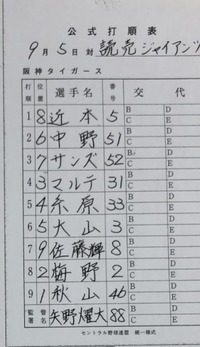 公式打順表
9月5日対 読売ジャイアンツ
阪神タイガース
打順 位置 選手名 番号 交代
1 8 近本 5 B D C E
2 6 中野 51 B D C E
3 7 サンズ 52 B D C E
4 3 マルテ 31 B D C E
5 4 糸原 33 B D C E
6 5 大山 3 B D C E
7 9 佐藤輝 8 B D C E
8 2 梅野 2 B D C E
9 1 秋山 46 B D C E
監督署名 矢野燿大 88 B D C E
セントラル野球連盟 統一様式